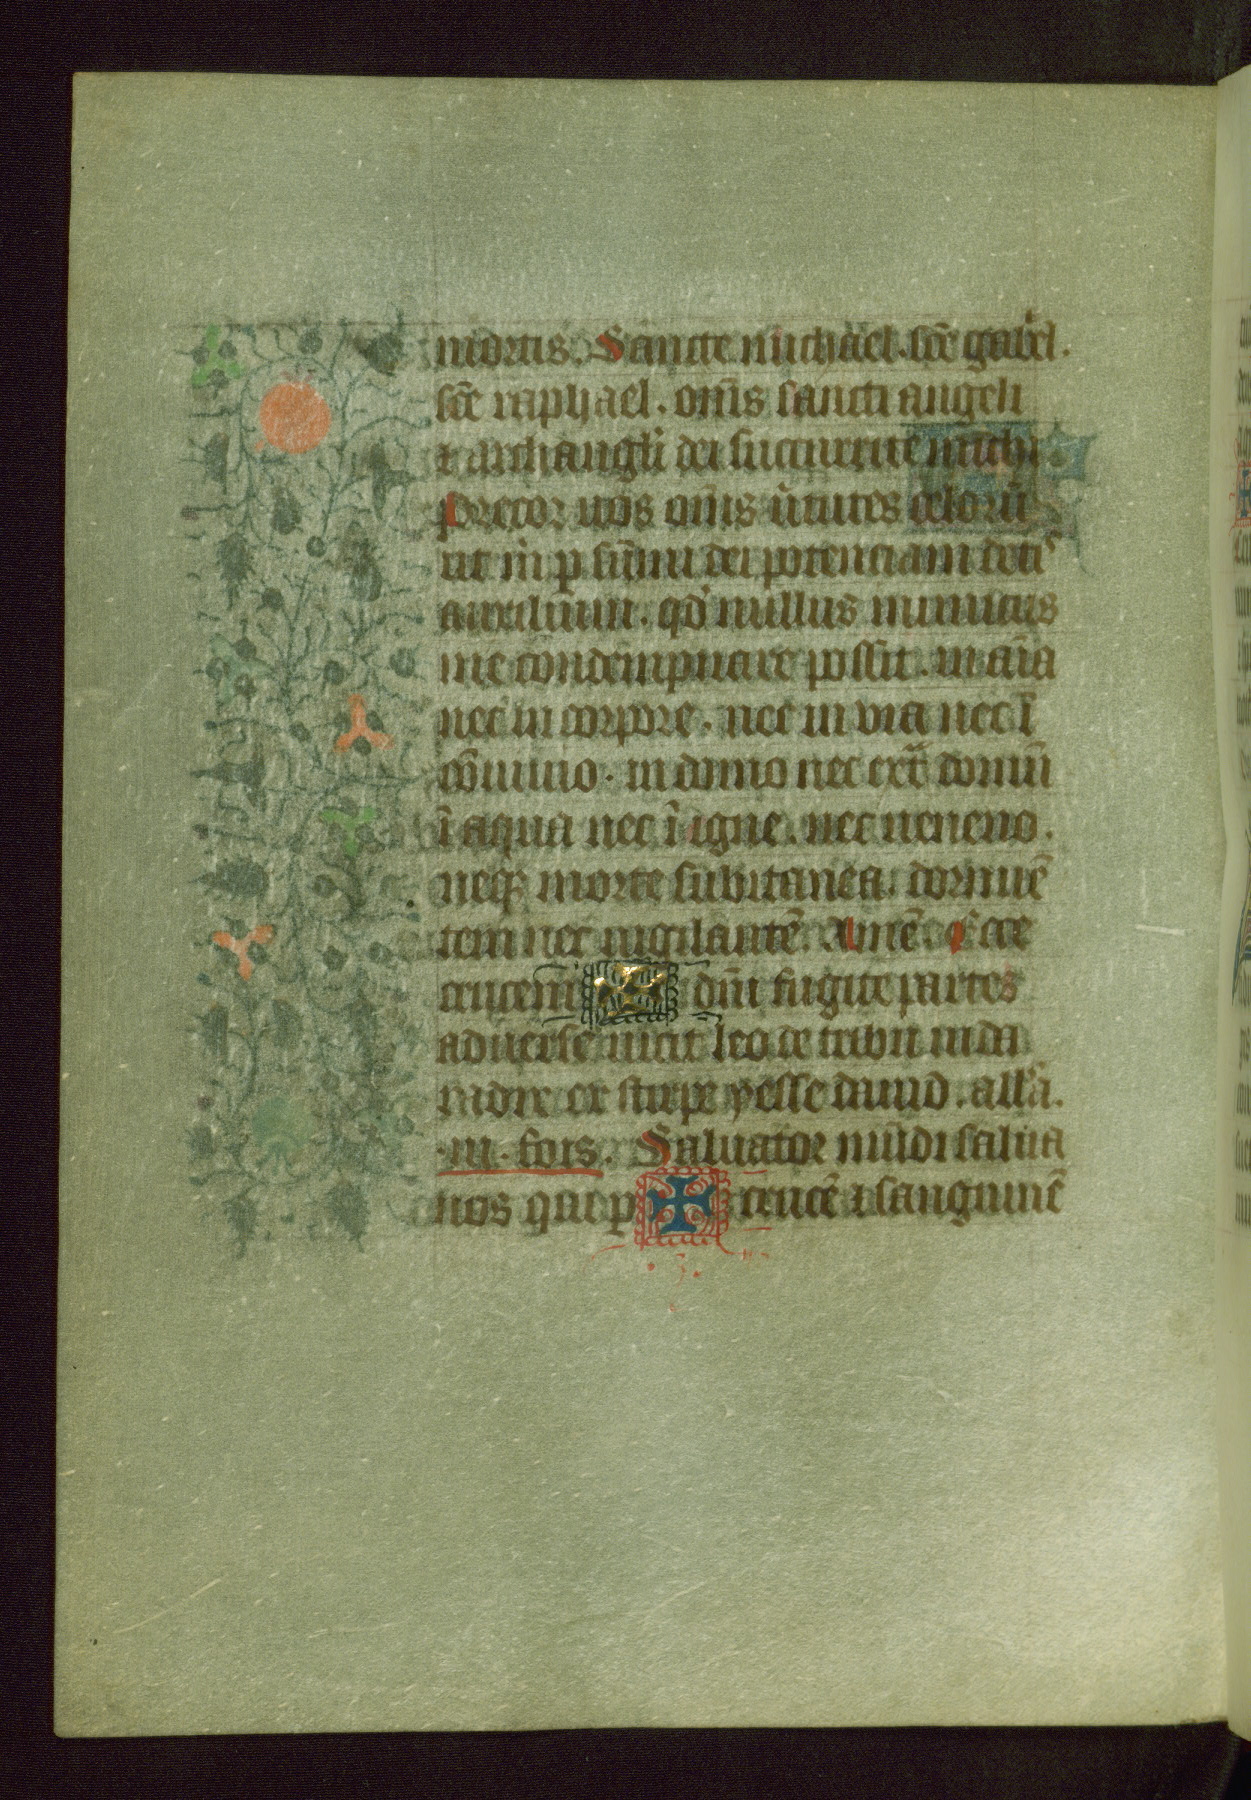 mortis. Sancte michael. scē gabriel.
scē raphael. om̄s sancti angeli
⁊ archangeli dei succurrite michi
precor uos om̄s v̄tutes celorū
ut m̄ p sūmi dei potenciam detis
auxilium. qd nullus inimicus
me condempnare possit. in aīa
nec in corpore. nec in via nec ī
cōmino. in domo nec extᵃ domū
ī aqua nec ī igne. nec ueneno.
neqꝫ morte subitanea. dormiē
tem nec uigilantē. Amē. Ecce
crucem ✠ dn̄i fugite partes
aduerse uicit leo de tribu iuda
radix ex stirpe yesse dauid. allā.
.iii. fois. Saluator mūdi salua
nos qui p ✠ crucē ⁊ sanguinē